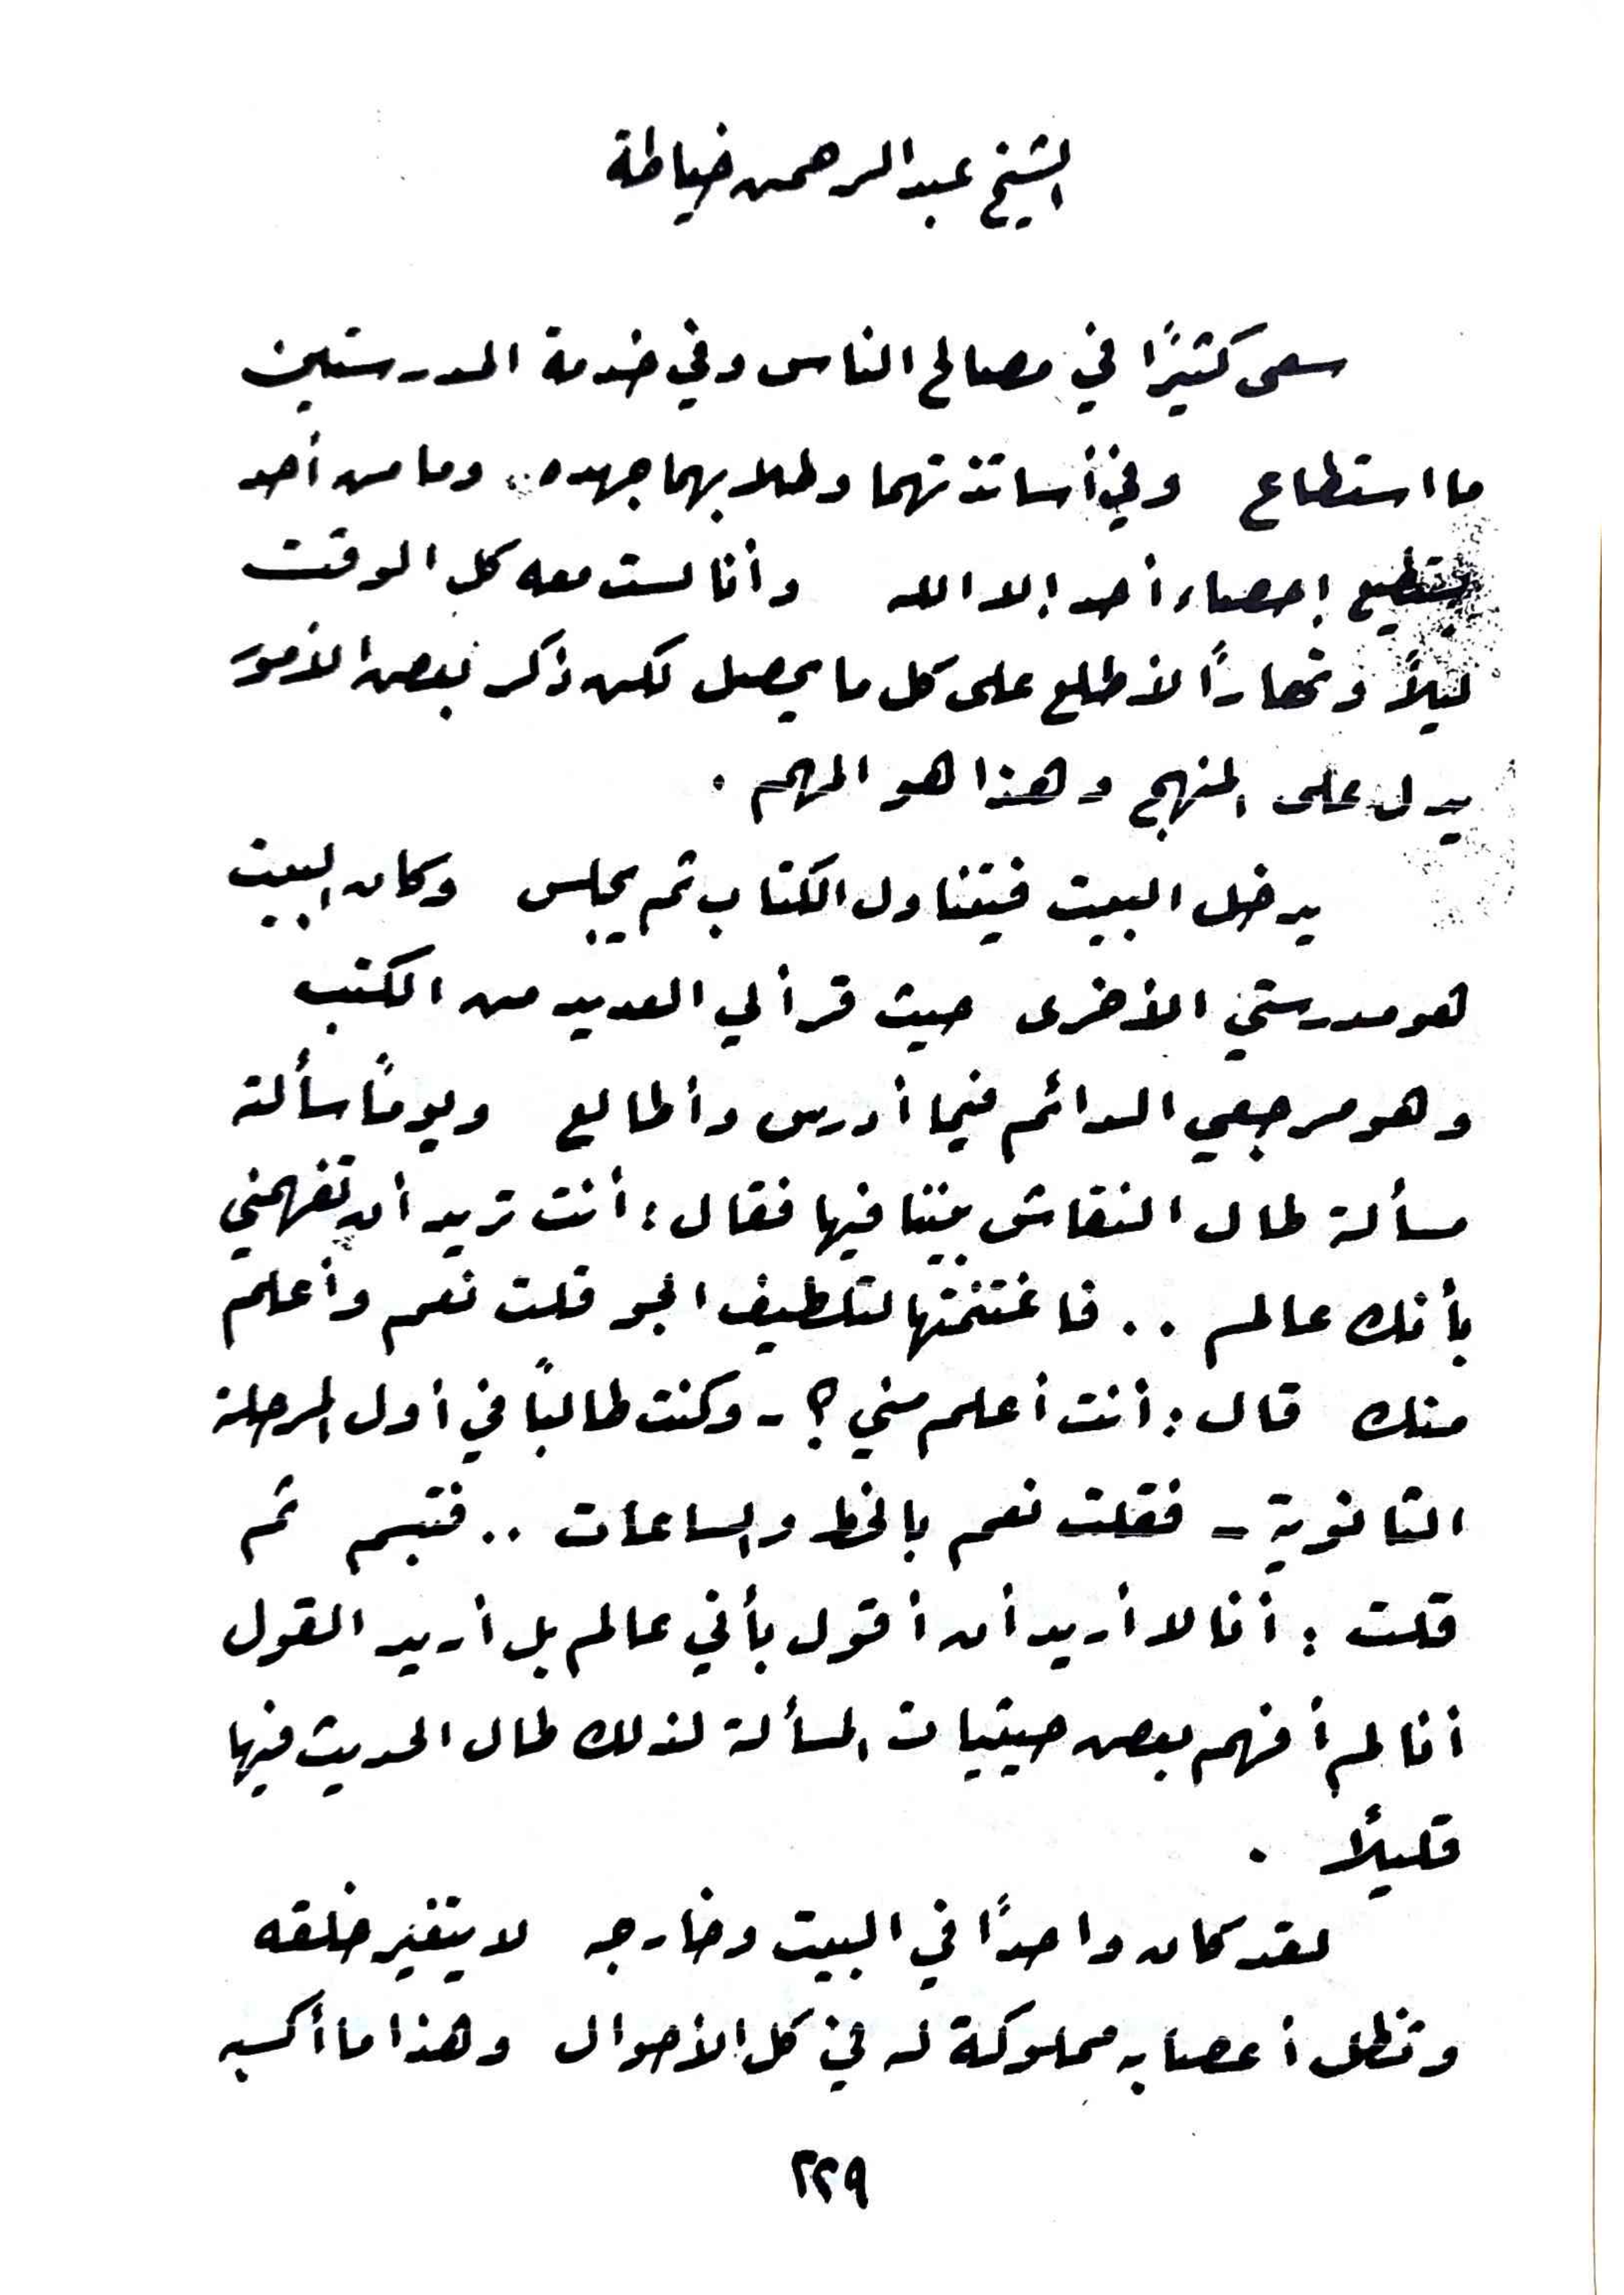 الشيخ عبدالرحمن خياطة
سعى كثيرًا في مصالح الناس وفي خدمة المدرستين
ما استطاع وفي أساتذتهما وطلابهما جهده.. وما من أحد
يستطيع إحصاء أحد إلا الله وأنا لست معه كل الوقت
ليلاً ونهارًا لأطلع على كل ما يحصل لكن ذكر بعض الأمور
يدل على المنهج وهذا هو المهم .
يدخل البيت فيتناول الكتاب ثم يجلس وكان البيت
هو مدرستي الأخرى حيث قرأ لي العديد من الكتب
وهو مرجعي الدائم فيما أدرس وأطالع ويومًا سألته
مسألة طال النقاش بيننا فيها فقال : أنت تريد أن تفهمني
بأنك عالم .. فاغتنمتها لتلطيف الجو قلت نعم وأعلم
منك قال : أنت أعلم مني ؟ - وكنت طالبًا في أول المرحلة
الثانوية - فقلت نعم بالخط والساعات .. فتبسم ثم
قلت : أنا لا أريد أن أقول بأني عالم بل أريد القول
أنا لم أفهم بعض حيثيات المسألة لذلك طال الحديث فيها
قليلاً .
لقد كان واحدًا في البيت وخارجه لا يتغير خلقه
وتظل أعصابه مملوكة له في كل الأحوال وهذا ما أكسبه
٢٢٩